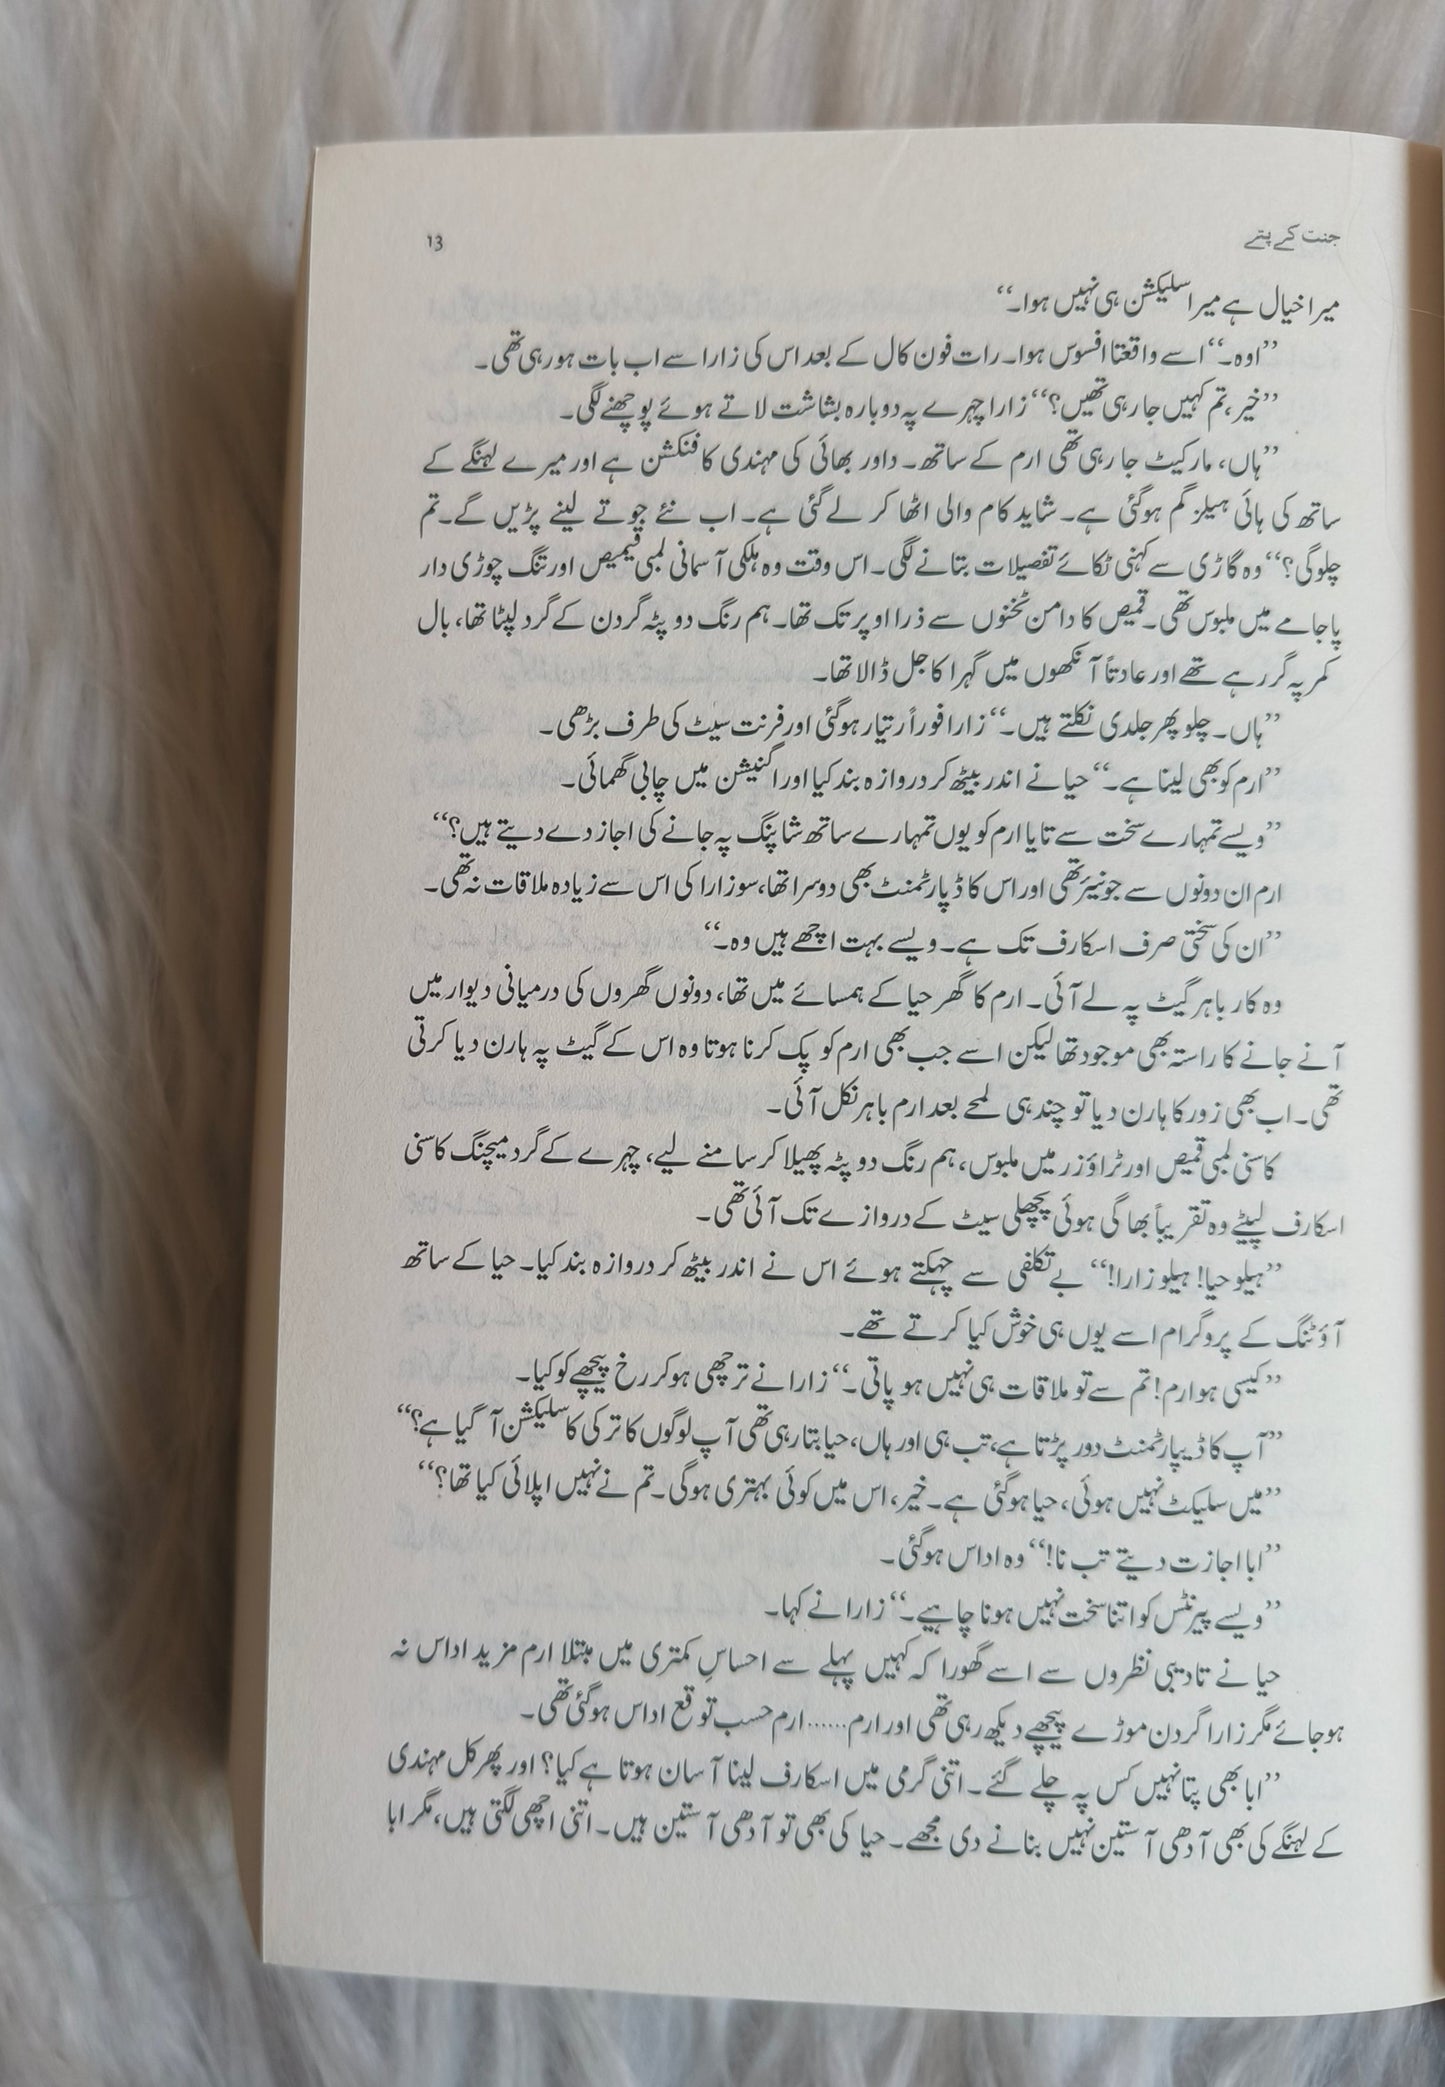 جنت کے پتے
13
میرا خیال ہے میرا سلیکشن ہی نہیں ہوا۔‘‘
’’اوہ۔‘‘ اسے واقعتا افسوس ہوا۔ رات فون کال کے بعد اس کی زارا سے اب بات ہو رہی تھی۔
’’خیر، تم کہیں جا رہی تھیں؟‘‘ زارا چہرے پہ دوبارہ بشاشت لاتے ہوئے پوچھنے لگی۔
’’ہاں، مارکیٹ جا رہی تھی ارم کے ساتھ۔ داور بھائی کی مہندی کا فنکشن ہے اور میرے لہنگے کے
ساتھ کی ہائی ہیلز گم ہوگئی ہے۔ شاید کام والی اٹھا کر لے گئی ہے۔ اب نئے جوتے لینے پڑیں گے۔ تم
چلو گی؟‘‘ وہ گاڑی سے کہنی ٹکائے تفصیلات بتانے لگی۔ اس وقت وہ ہلکی آسمانی لمبی قمیص اور تنگ چوڑی دار
پاجامے میں ملبوس تھی۔ قمیص کا دامن ٹخنوں سے ذرا اوپر تک تھا۔ ہم رنگ دوپٹہ گردن کے گرد لپٹا تھا، بال
کمر پہ گر رہے تھے اور عادتاً آنکھوں میں گہرا کاجل ڈالا تھا۔
’’ہاں۔ چلو پھر جلدی نکلتے ہیں۔‘‘ زارا فوراً رتیار ہوگئی اور فرنٹ سیٹ کی طرف بڑھی۔
’’ارم کو بھی لینا ہے۔‘‘ حیا نے اندر بیٹھ کر دروازہ بند کیا اور اگنیشن میں چابی گھمائی۔
’’ویسے تمہارے سخت سے تایا ارم کو یوں تمہارے ساتھ شاپنگ پہ جانے کی اجاز دے دیتے ہیں؟‘‘
ارم ان دونوں سے جونیئر تھی اور اس کا ڈپارٹمنٹ بھی دوسرا تھا، سو زارا کی اس سے زیادہ ملاقات نہ تھی۔
’’ان کی سختی صرف اسکارف تک ہے۔ ویسے بہت اچھے ہیں وہ۔‘‘
وہ کار باہر گیٹ پہ لے آئی۔ ارم کا گھر حیا کے ہمسائے میں تھا، دونوں گھروں کی درمیانی دیوار میں
آنے جانے کا راستہ بھی موجود تھا لیکن اسے جب بھی ارم کو پک کرنا ہوتا وہ اس کے گیٹ پہ ہارن دیا کرتی
تھی۔ اب بھی زور کا ہارن دیا تو چند ہی لمحے بعد ارم باہر نکل آئی۔
کاسنی لمبی قمیص اور ٹراؤزر میں ملبوس، ہم رنگ دوپٹہ پھیلا کر سامنے لیے، چہرے کے گرد میچنگ کاسنی
اسکارف لپیٹے وہ تقریباً بھاگی ہوئی پچھلی سیٹ کے دروازے تک آئی تھی۔
’’ہیلو حیا! ہیلو زارا!‘‘ بے تکلفی سے چہکتے ہوئے اس نے اندر بیٹھ کر دروازہ بند کیا۔ حیا کے ساتھ
آؤٹنگ کے پروگرام اسے یوں ہی خوش کیا کرتے تھے۔
’’کیسی ہو ارم! تم سے تو ملاقات ہی نہیں ہو پاتی۔‘‘ زارا نے ترچھی ہو کر رخ پیچھے کو کیا۔
’’آپ کا ڈیپارٹمنٹ دور پڑتا ہے، تب ہی اور ہاں، حیا بتا رہی تھی آپ لوگوں کا ترکی کا سلیکشن آ گیا ہے؟‘‘
’’میں سلیکٹ نہیں ہوئی، حیا ہوگئی ہے۔ خیر، اس میں کوئی بہتری ہوگی۔ تم نے نہیں اپلائی کیا تھا؟‘‘
’’ابا اجازت دیتے تب نا!‘‘ وہ اداس ہوگئی۔
’’ویسے پیرنٹس کو اتنا سخت نہیں ہونا چاہیے۔‘‘ زارا نے کہا۔
حیا نے تادیبی نظروں سے اسے گھورا کہ کہیں پہلے سے احساسِ کمتری میں مبتلا ارم مزید اداس نہ
ہو جائے مگر زارا گردن موڑے پیچھے دیکھ رہی تھی اور ارم...... ارم حسب توقع اداس ہوگئی تھی۔
’’ابا بھی پتا نہیں کس پہ چلے گئے۔ اتنی گرمی میں اسکارف لینا آسان ہوتا ہے کیا؟ اور پھر کل مہندی
کے لہنگے کی بھی آدھی آستین نہیں بنانے دی مجھے۔ حیا کی بھی تو آدھی آستین ہیں۔ اتنی اچھی لگتی ہیں، مگر ابا